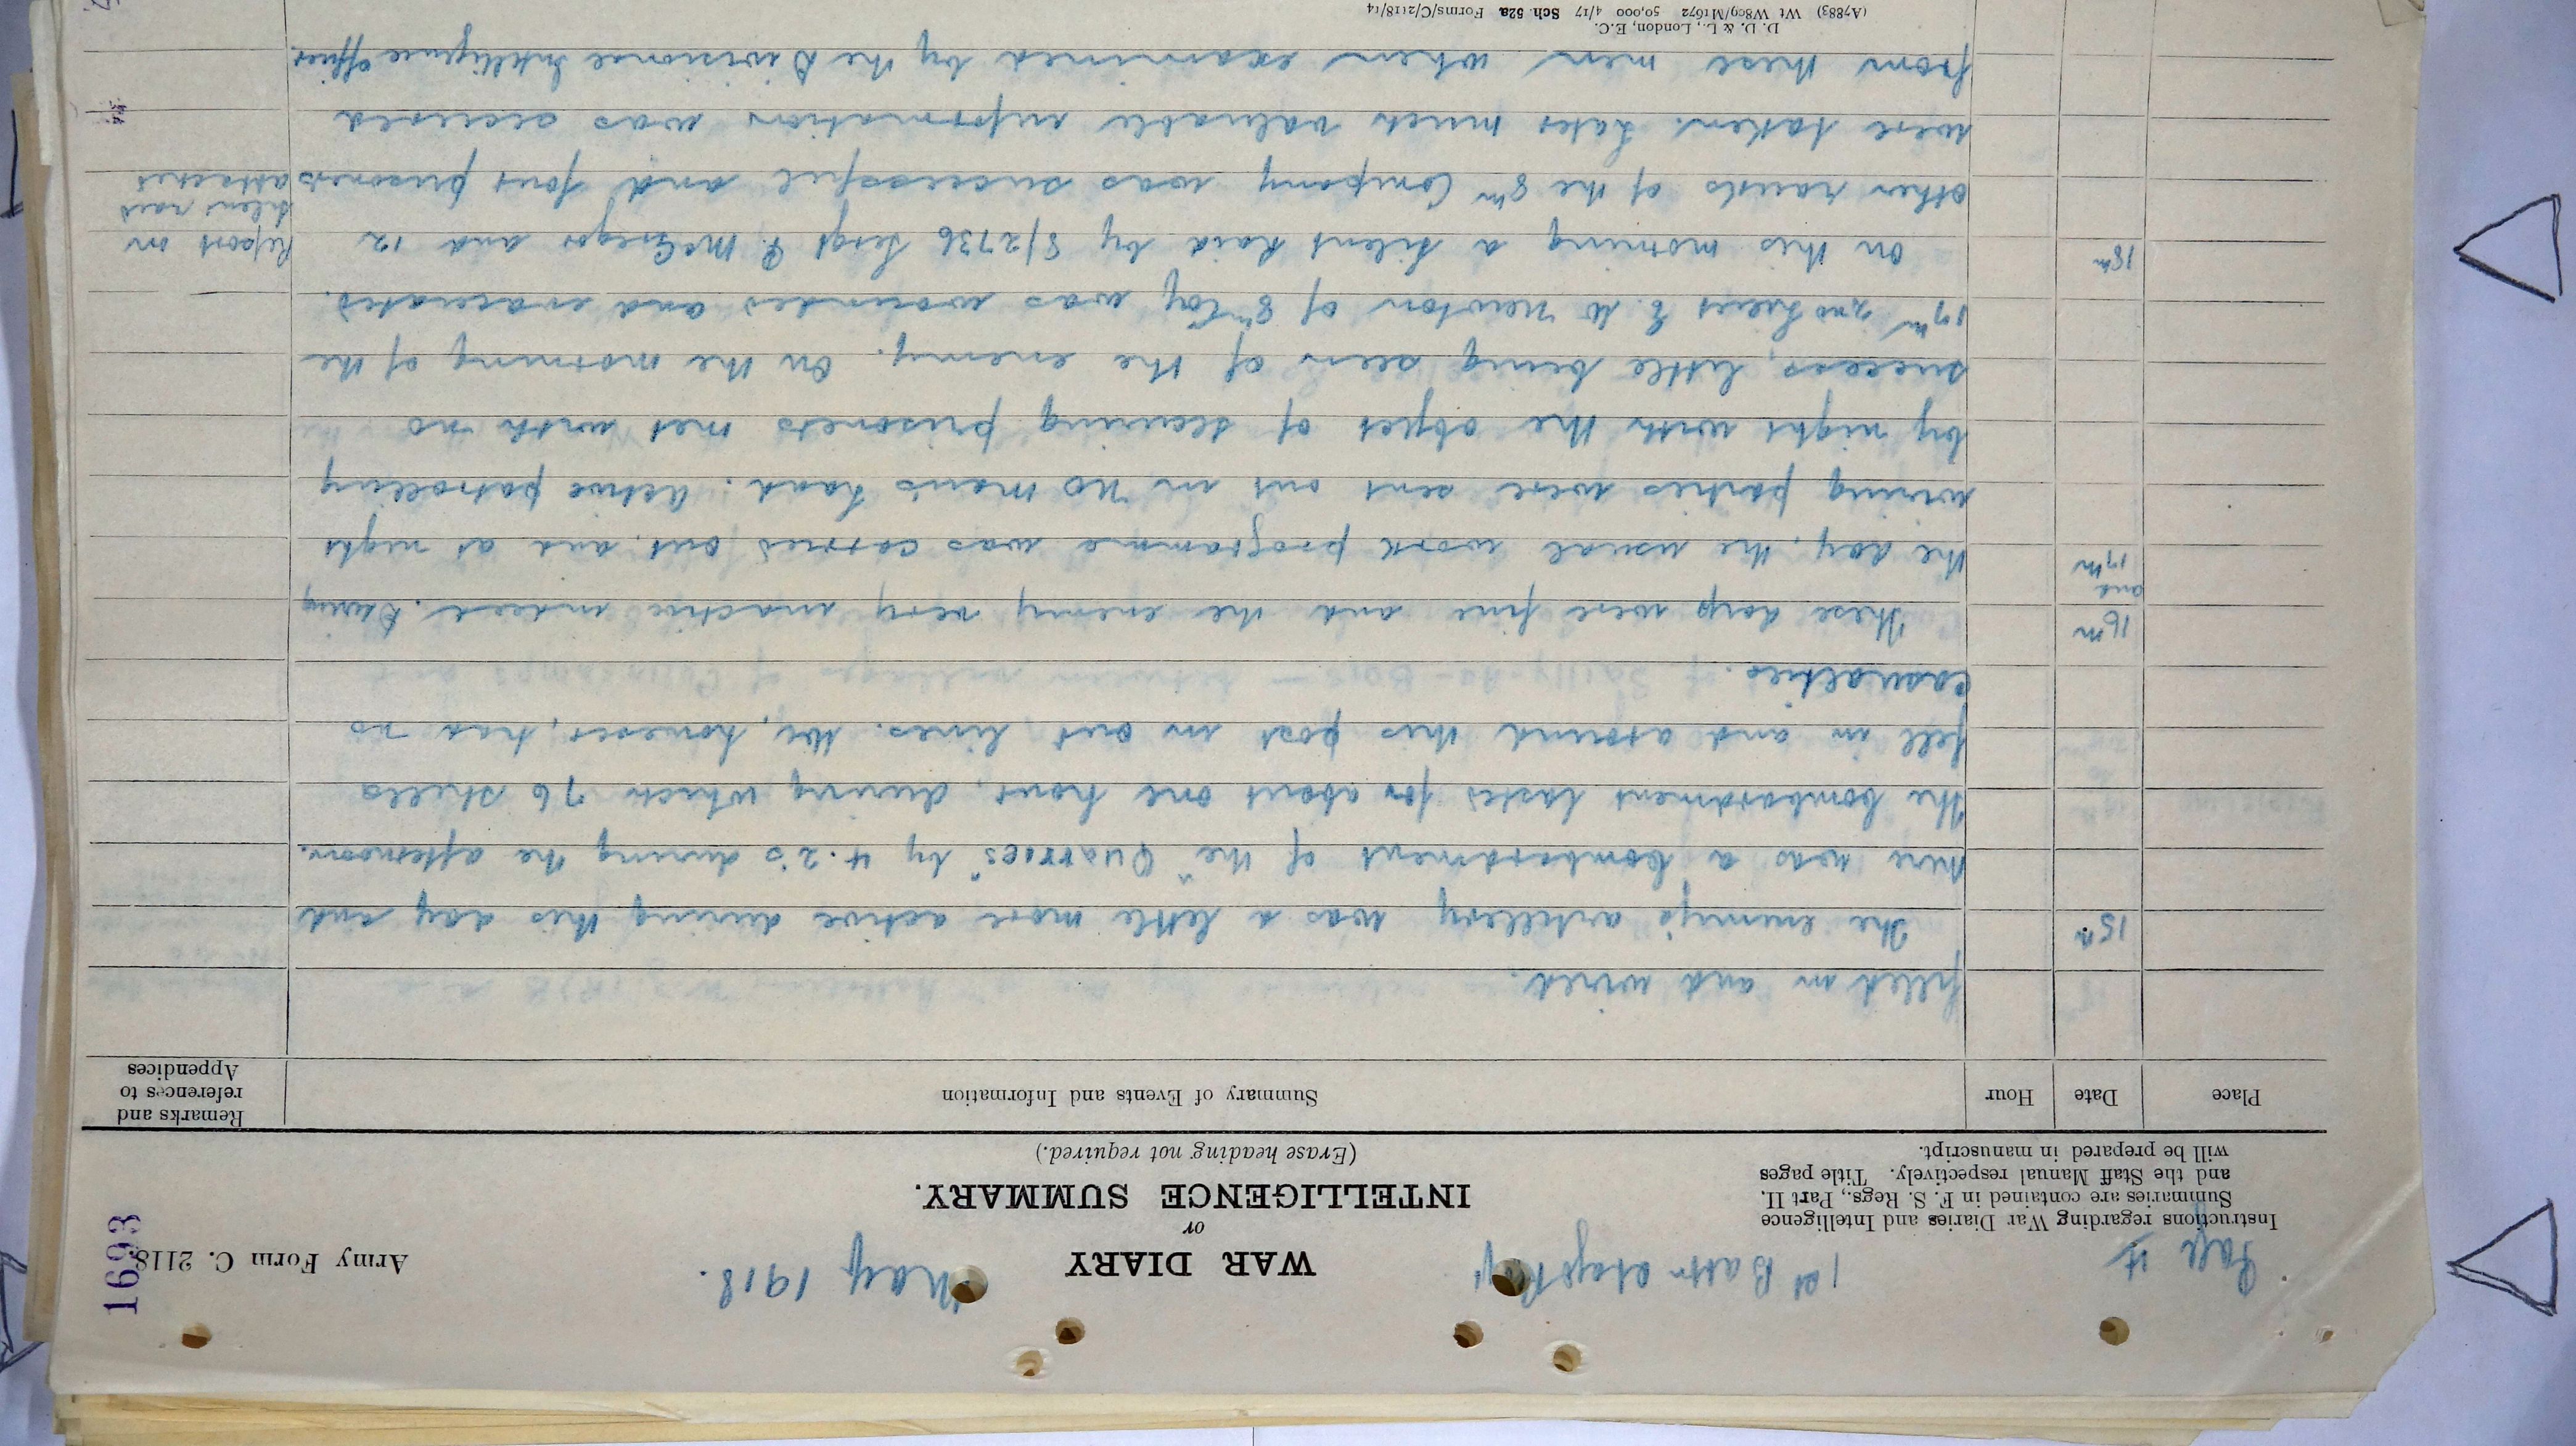 Page 4
1st Battn Otago Regt
May 1918.
Army Form C. 2118.
1693
WAR DIARY
or
INTELLIGENCE SUMMARY.
(Erase heading not required.)
Instructions regarding War Diaries and Intelligence
Summaries are contained in F. S. Regs., Part II.
and the Staff Manual respectively. Title pages
will be prepared in manuscript.
Place
Date
Hour
Summary of Events and Information
Remarks and
references to
Appendices
filled in and wired.
15th The enemy's artillery was a little more active during this day and
there was a bombardment of the "Quarries" by 4.2's during the afternoon.
The bombardment lasted for about one hour, during which 76 shells
fell in and around this post in our lines. We, however, had no
casualties.
16th These days were fine and the enemy very inactive indeed. During
and
17th
the day, the usual work programme was carried out, and at night
wiring parties were sent out in No Man's Land. Active patrolling
by night with the object of securing prisoners met with no
success, little being seen of the enemy. On the morning of the
17th 2nd Lieut E. W Newton of 8th Coy was wounded and evacuated.
18th On this morning a silent Raid by 8/2736 Sergt P. McGregor and 12 Report on
silent raid
other ranks of the 8th Company was successful and four prisoners attached
were taken. Later much valuable information was accured
from these men when examined by the Divisional Intelligence Officer.
D. D. & L., London, E.C.
(A7883) Wt W809/M1672 50,000 4/17 Sch. 52a Forms/C/2118/14